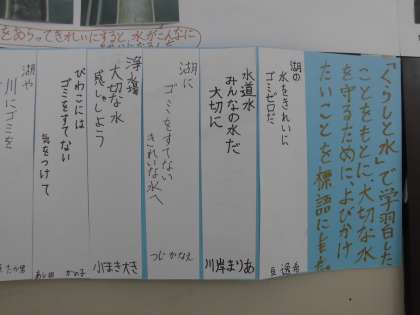 をあらってきれいにすると、水がこんなに
「くらしと水」で学習した
ことをもとに、大切な水
を守るために、よびかけ
たいことを標語にしました。
湖の
水をきれいに
ゴミゼロだ
水道水
みんなの水だ
大切に
川岸まりあ
湖に
ゴミをすてない
きれいな水へ
つじかなえ
浄水場
大切な水
感しゃしよう
小まき大き
びわこには
ゴミをすてない
気をつけて
湖や
川にゴミを